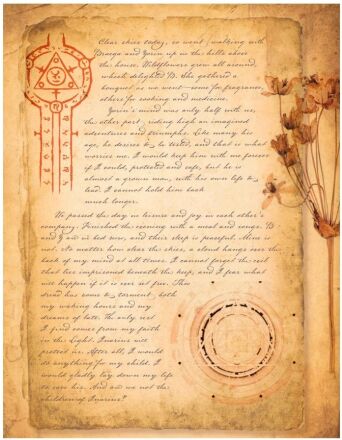 Clear skies today, so went walking with
Braega and Yorin up in the hills above
the house. Wildflowers grew all around,
which delighted B. She gathered a
bouquet as we went—some for fragrance,
others for cooking and medicine.
Yorin's mind was only half with us,
the other part, riding high on imagined
adventures and triumphs. Like many his
age, he desires to be tested, and that is what
worries me. I would keep him with me forever
if I could, protected and safe, but he is
almost a grown man, with his own life to
lead. I cannot hold him back
much longer.
We passed the day in leisure and joy in each other's
company. Finished the evening with a meal and songs. B
and Y are in bed now, and their sleep is peaceful. Mine is
not. No matter how clear the skies, a cloud hangs over the
back of my mind at all times. I cannot forget the evil
that lies imprisoned beneath the keep, and I fear what
will happen if it is ever set free. This
dread has come to torment both
my waking hours and my
dreams of late. The only rest
I find comes from my faith
in the Light. Inarius will
protect us. After all, I would
do anything for my child. I
would gladly lay down my life
to save his. And are we not the
children of Inarius?